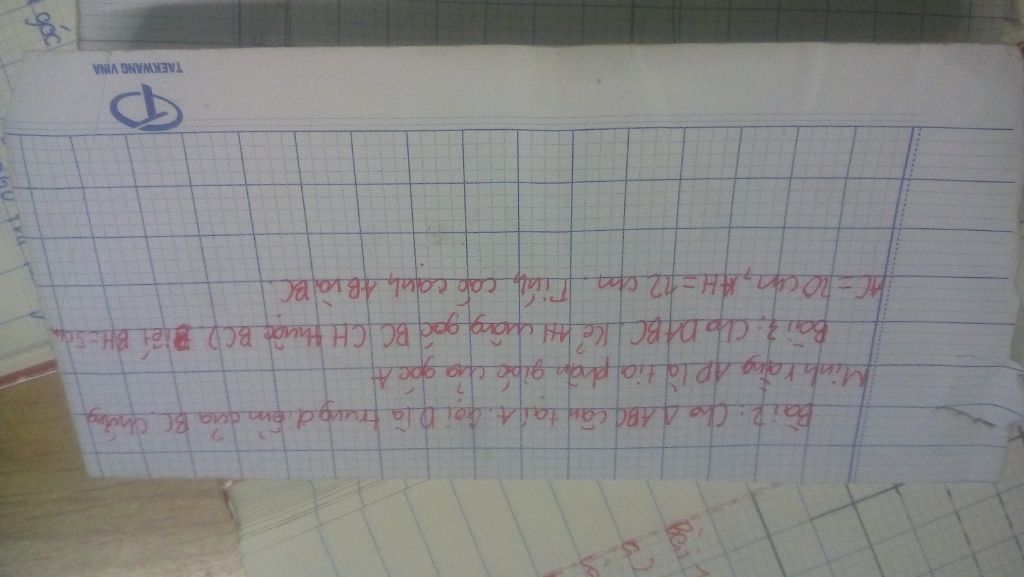 Bài 2: Cho Δ ABC cân tại A. Gọi D là trung điểm của BC. Chứng
Minh rằng AD là tia phân giác của góc A
Bài 3: Cho ΔABC. Kẻ AH vuông góc BC (H thuộc BC). Biết BH=5cm,
AC = 20 cm, AH = 12 cm. Tính các cạnh AB và BC.
TAEKWANG VINA
góc